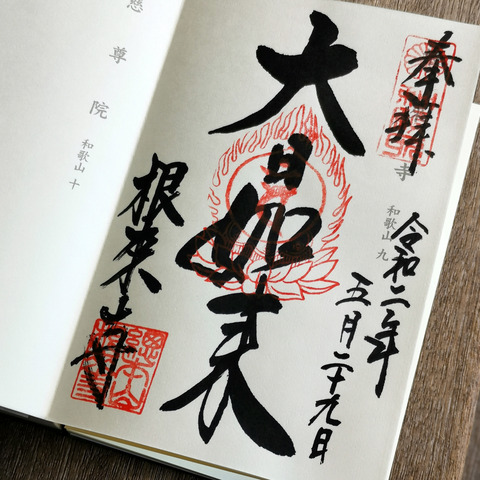 奉拝
寺 和歌山 九
令和二年
五月二十九日
大日如来
根来寺
慈尊院 和歌山 十